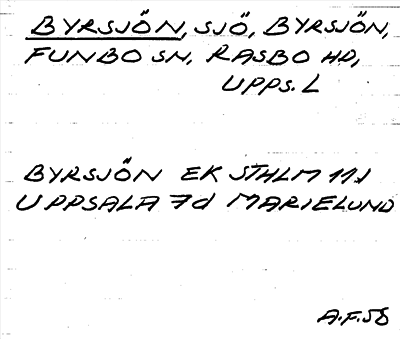 BYRSJÖN, SJÖ, BYRSJÖN,
FUNBO SN, RASBO HD,
UPPS. L
BYRSJÖN EK STHLM 11J
UPPSALA 7d MARIELUND
A.F. 58